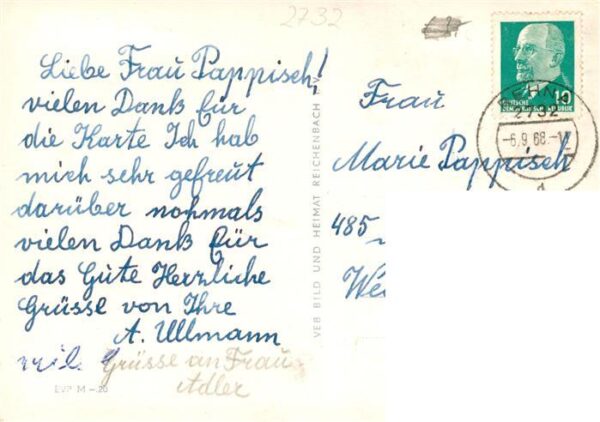 2732
Liebe Frau Pappisch!
vielen Dank für
die Karte Ich hab
mich sehr gefreut
darüber nohmals
vielen Dank für
das Gute Herzliche
Grüsse von Ihre
A. Ullmann
Grüsse an Frau
Adler
EVP M –.20
VEB BILD UND HEIMAT REICHENBACH I. V.
10
DEUTSCHE
DEMOKRATISCHE REPUBLIK
2732
-6.9.68.-
d
Frau
Marie Pappisch
485
We